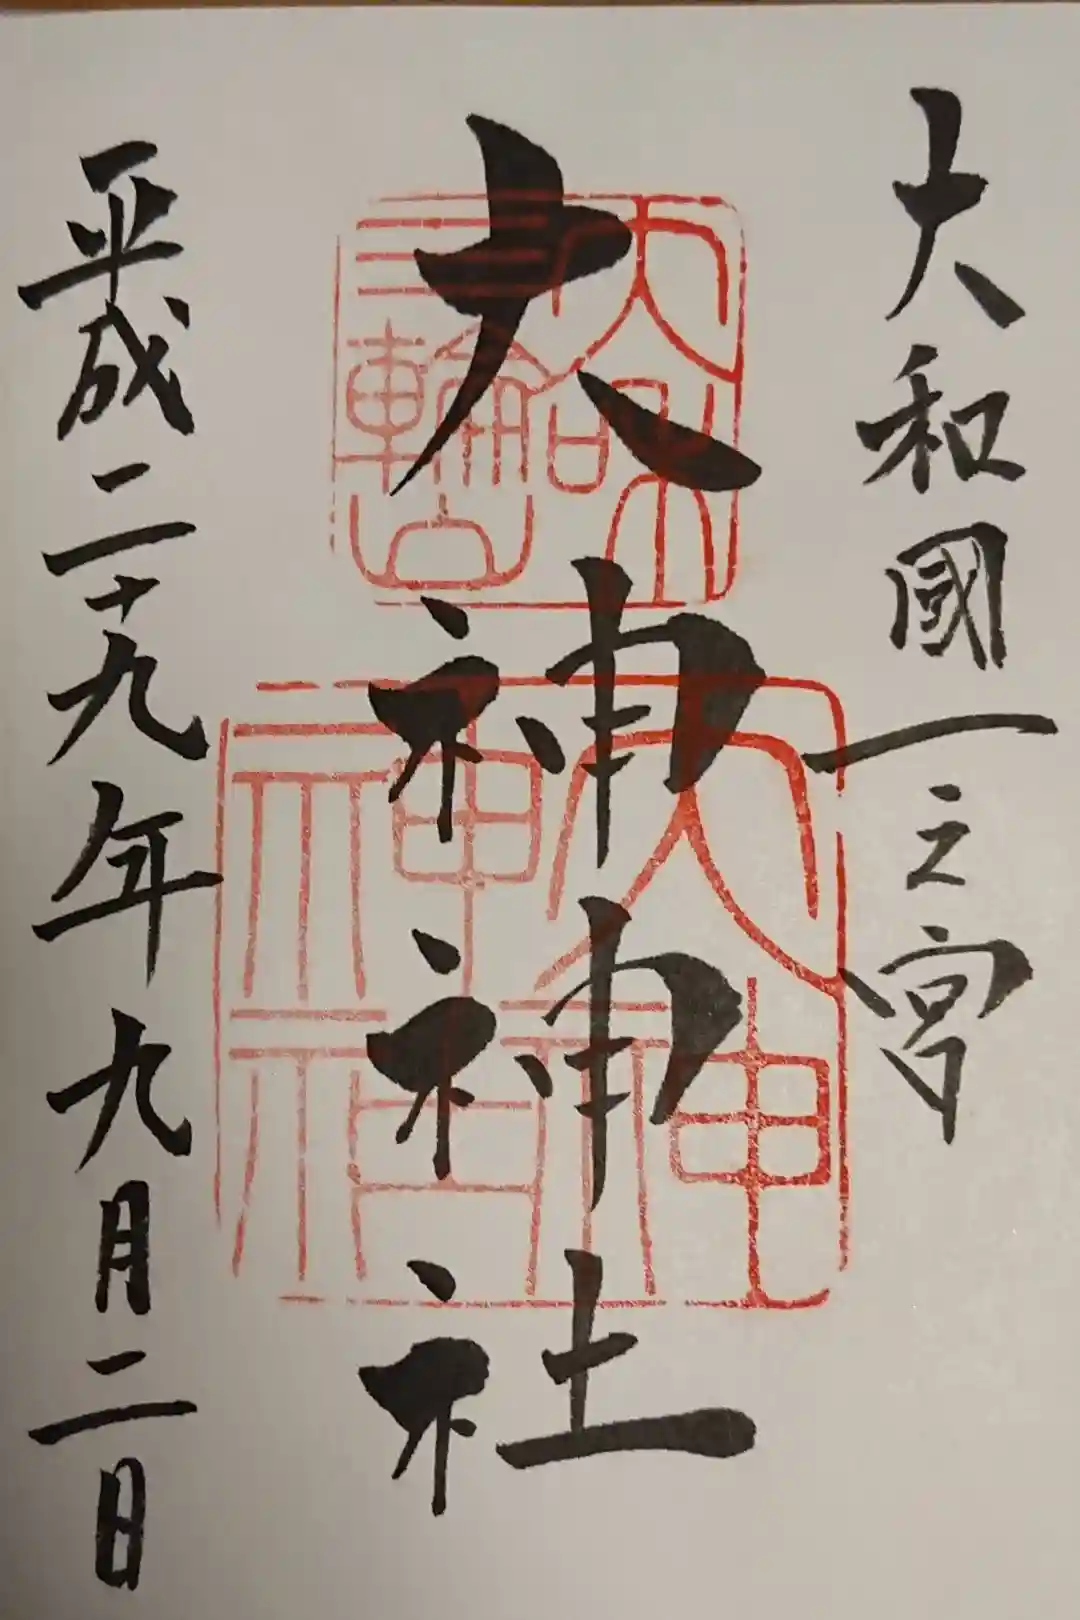 大和國一之宮
大神神社
平成二十九年九月二日
大和
三輪山
大神
神